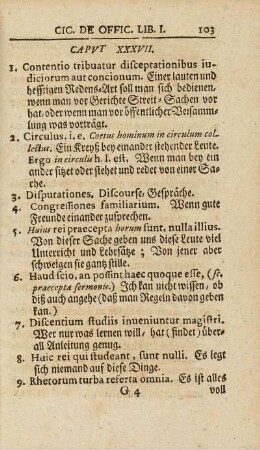 CIC. DE OFFIC. LIB. I. 103
CAPVT XXXVII.
1. Contentio tribuatur disceptationibus iu-
diciorum aut concionum. Einer lauten und
hefftigen Redens-Art soll man sich bedienen,
wenn man vor Gerichte Streit-Sachen vor
hat, oder wenn man vor öffentlicher Versamm-
lung was vorträgt.
2. Circulus. i. e. Coetus hominum in circulum col-
lectus. Ein Kreyß bey einander stehender Leute.
Ergo in circulu h. l. est, Wenn man bey ein
ander sitzt oder stehet und redet von einer Sa-
che.
3. Disputationes. Discourse, Gespräche.
4. Congressiones familiarium. Wenn gute
Freunde einander zusprechen.
5. Huius rei praecepta horum sunt, nulla illius.
Von dieser Sache geben uns diese Leute viel
Unterricht und Lehrsätze; Von jener aber
schweigen sie gantz stille.
6. Haud scio, an possint haec quoque esse, (sc.
praecepta sermonis.) Ich kan nicht wissen, ob
diß auch angehe (daß man Regeln davon geben
kan.)
7. Discentium studiis inueniuntur magistri.
Wer nur was lernen will, hat (findet) über-
all Anleitung genug.
8. Huic rei qui studeant, sunt nulli. Es legt
sich niemand auf diese Dinge.
9. Rhetorum turba referta omnia. Es ist alles
G 4 voll